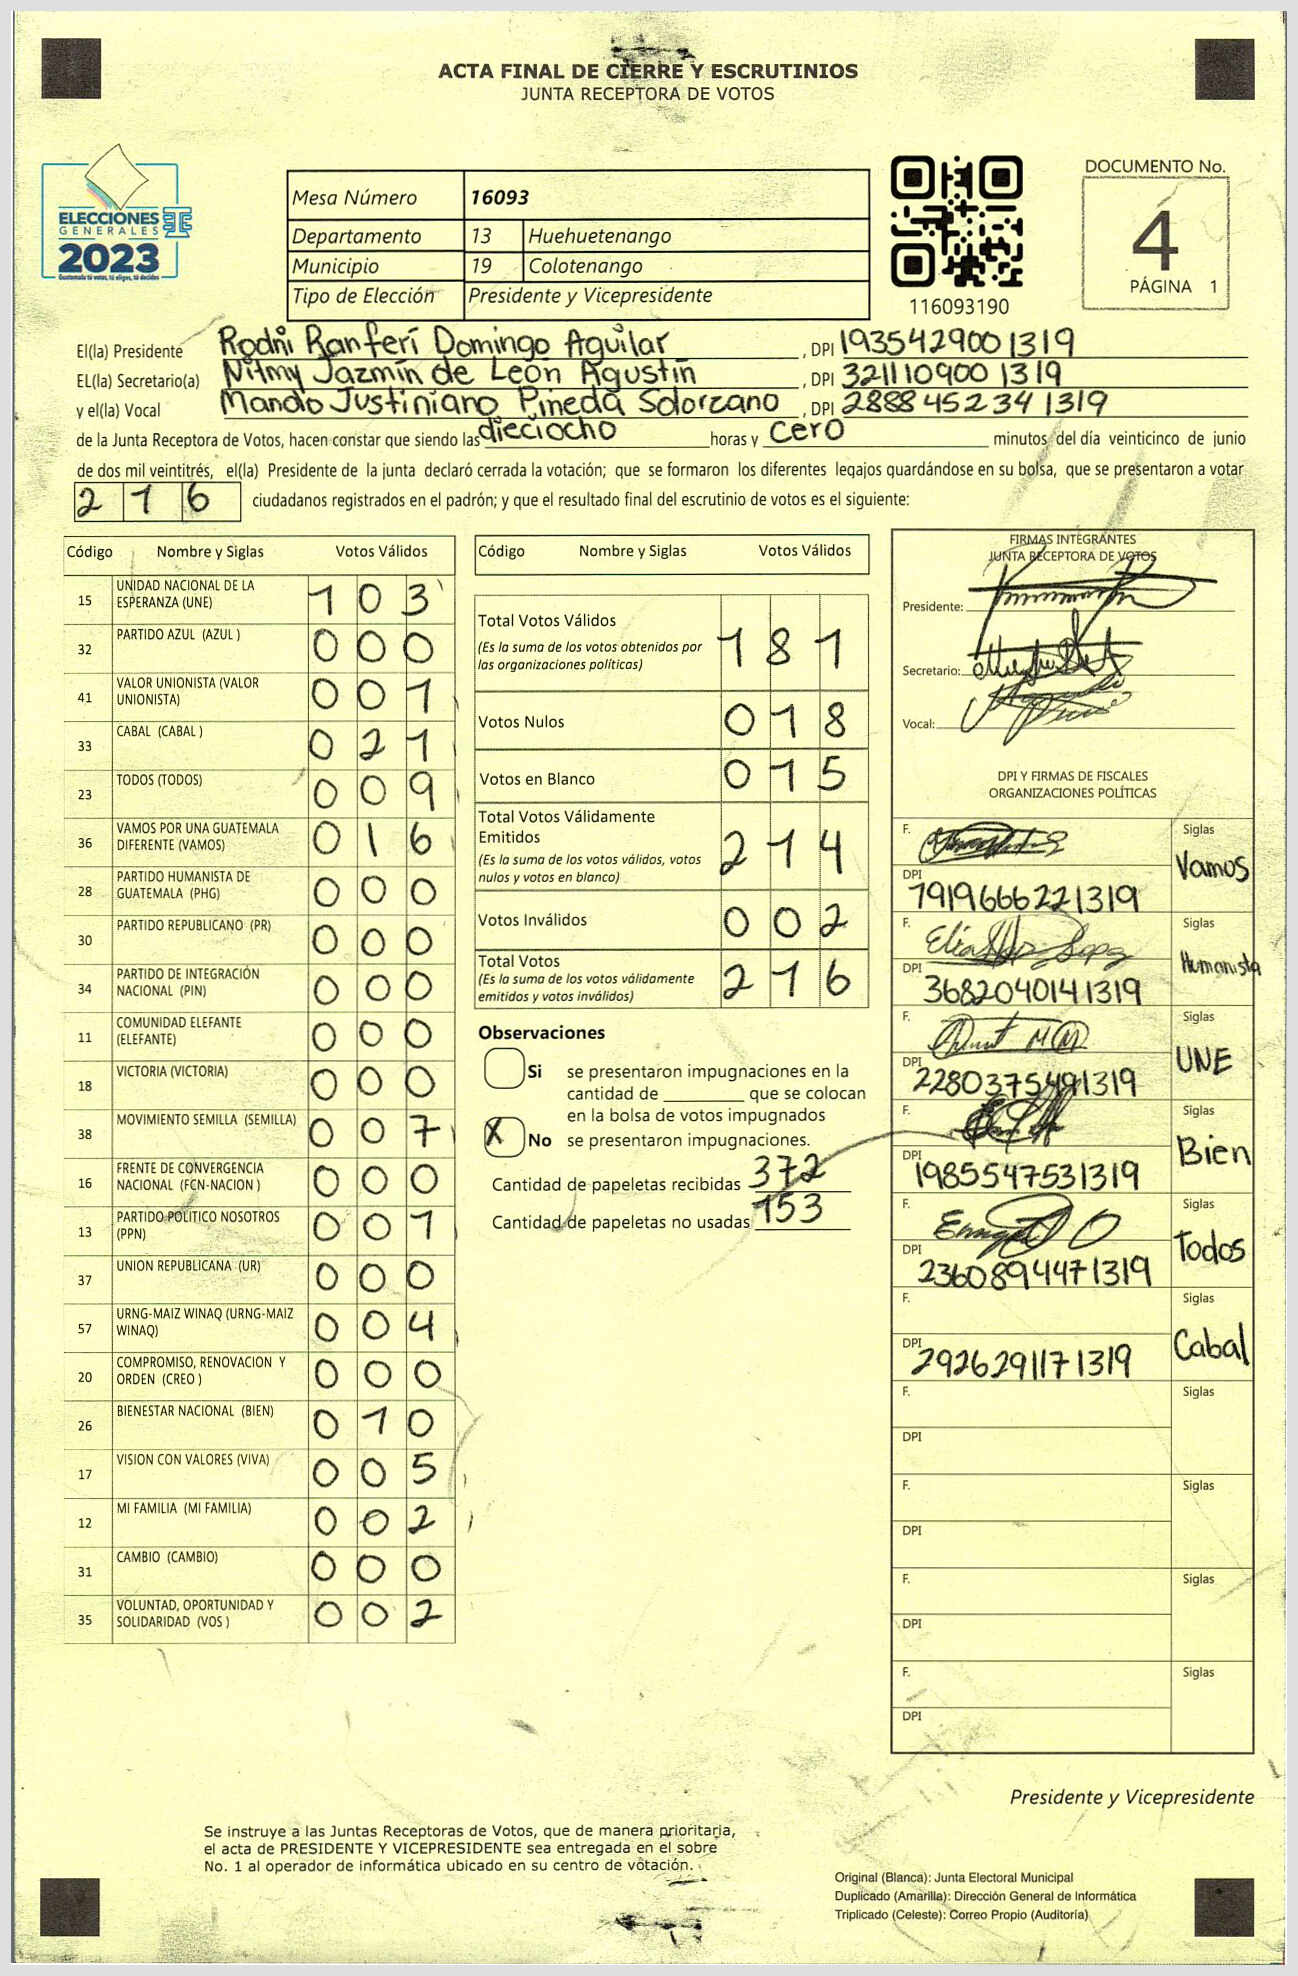 ACTA FINAL DE CIERRE Y ESCRUTINIOS
JUNTA RECEPTORA DE VOTOS
ELECCIONES
GENERALES
2023
Guatemala tú votas, tú eliges, tú decides
Mesa Número 16093
Departamento 13 Huehuetenango
Municipio 19 Colotenango
Tipo de Elección Presidente y Vicepresidente
116093190
DOCUMENTO No.
4
PÁGINA 1
El(la) Presidente Rodni Ranferí Domingo Aguilar, DPI 193542900 1319
EL(la) Secretario(a) Nitmy Jazmín de León Agustín, DPI 321110900 1319
y el(la) Vocal Mandio Justiniano Pineda Solorzano, DPI 2888452341319
de la Junta Receptora de Votos, hacen constar que siendo las dieciocho horas y cero minutos del día veinticinco de junio
de dos mil veintitrés, el(la) Presidente de la junta declaró cerrada la votación; que se formaron los diferentes legajos quardándose en su bolsa, que se presentaron a votar
216 ciudadanos registrados en el padrón; y que el resultado final del escrutinio de votos es el siguiente:
Código Nombre y Siglas Votos Válidos
15 UNIDAD NACIONAL DE LA ESPERANZA (UNE) 103
32 PARTIDO AZUL (AZUL ) 000
41 VALOR UNIONISTA (VALOR UNIONISTA) 001
33 CABAL (CABAL ) 021
23 TODOS (TODOS) 009
36 VAMOS POR UNA GUATEMALA DIFERENTE (VAMOS) 016
28 PARTIDO HUMANISTA DE GUATEMALA (PHG) 000
30 PARTIDO REPUBLICANO (PR) 000
34 PARTIDO DE INTEGRACIÓN NACIONAL (PIN) 000
11 COMUNIDAD ELEFANTE (ELEFANTE) 000
18 VICTORIA (VICTORIA) 000
38 MOVIMIENTO SEMILLA (SEMILLA) 007
16 FRENTE DE CONVERGENCIA NACIONAL (FCN-NACION ) 000
13 PARTIDO POLITICO NOSOTROS (PPN) 001
37 UNION REPUBLICANA (UR) 000
57 URNG-MAIZ WINAQ (URNG-MAIZ WINAQ) 004
20 COMPROMISO, RENOVACION Y ORDEN (CREO ) 000
26 BIENESTAR NACIONAL (BIEN) 010
17 VISION CON VALORES (VIVA) 005
12 MI FAMILIA (MI FAMILIA) 002
31 CAMBIO (CAMBIO) 000
35 VOLUNTAD, OPORTUNIDAD Y SOLIDARIDAD (VOS ) 002
Código Nombre y Siglas Votos Válidos
Total Votos Válidos 181
(Es la suma de los votos obtenidos por
las organizaciones políticas)
Votos Nulos 018
Votos en Blanco 015
Total Votos Válidamente
Emitidos 214
(Es la suma de los votos válidos, votos
nulos y votos en blanco)
Votos Inválidos 002
Total Votos 216
(Es la suma de los votos válidamente
emitidos y votos inválidos)
Observaciones
Si se presentaron impugnaciones en la
cantidad de que se colocan
en la bolsa de votos impugnados
X No se presentaron impugnaciones.
Cantidad de papeletas recibidas 372
Cantidad de papeletas no usadas 153
FIRMAS INTEGRANTES
JUNTA RECEPTORA DE VOTOS
Presidente:
Secretario:
Vocal:
DPI Y FIRMAS DE FISCALES
ORGANIZACIONES POLÍTICAS
F. Siglas Vamos
DPI 7919666221319
F. Siglas Humanista
DPI 3682040141319
F. Siglas UNE
DPI 2280375491319
F. Siglas Bien
DPI 1985547531319
F. Siglas Todos
DPI 2360894471319
F. Siglas Cabal
DPI 2926291171319
F. Siglas
DPI
F. Siglas
DPI
F. Siglas
DPI
F. Siglas
DPI
Presidente y Vicepresidente
Se instruye a las Juntas Receptoras de Votos, que de manera prioritaria,
el acta de PRESIDENTE Y VICEPRESIDENTE sea entregada en el sobre
No. 1 al operador de informática ubicado en su centro de votación.
Original (Blanca): Junta Electoral Municipal
Duplicado (Amarilla): Dirección General de Informática
Triplicado (Celeste): Correo Propio (Auditoría)